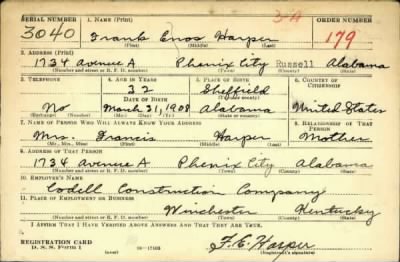 SERIAL NUMBER 1. NAME (Print) 3A ORDER NUMBER
3040 Frank Enos Harper 179
(First) (Middle) (Last)
2. ADDRESS (Print)
1734 Avenue A Phenix City Russell Alabama
(Number and street or R. F. D. number) (Town) (County) (State)
3. TELEPHONE 4. AGE IN YEARS 5. PLACE OF BIRTH 6. COUNTRY OF CITIZENSHIP
32 Sheffield
DATE OF BIRTH (Town or county)
No March 31, 1908 Alabama United States
(Exchange) (Number) (Mo.) (Day) (Yr.) (State or country)
7. NAME OF PERSON WHO WILL ALWAYS KNOW YOUR ADDRESS 8. RELATIONSHIP OF THAT PERSON
Mrs. Francis Harper Mother
(Mr., Mrs., Miss) (First) (Middle) (Last)
9. ADDRESS OF THAT PERSON
1734 Avenue A Phenix City Alabama
(Number and street or R. F. D. number) (Town) (County) (State)
10. EMPLOYER'S NAME
Codell Construction Company
11. PLACE OF EMPLOYMENT OR BUSINESS
Winchester Kentucky
(Number and street or R. F. D. number) (Town) (County) (State)
I AFFIRM THAT I HAVE VERIFIED ABOVE ANSWERS AND THAT THEY ARE TRUE.
REGISTRATION CARD
D. S. S. FORM 1 16—17105 F. E. Harper
(Registrant's signature)